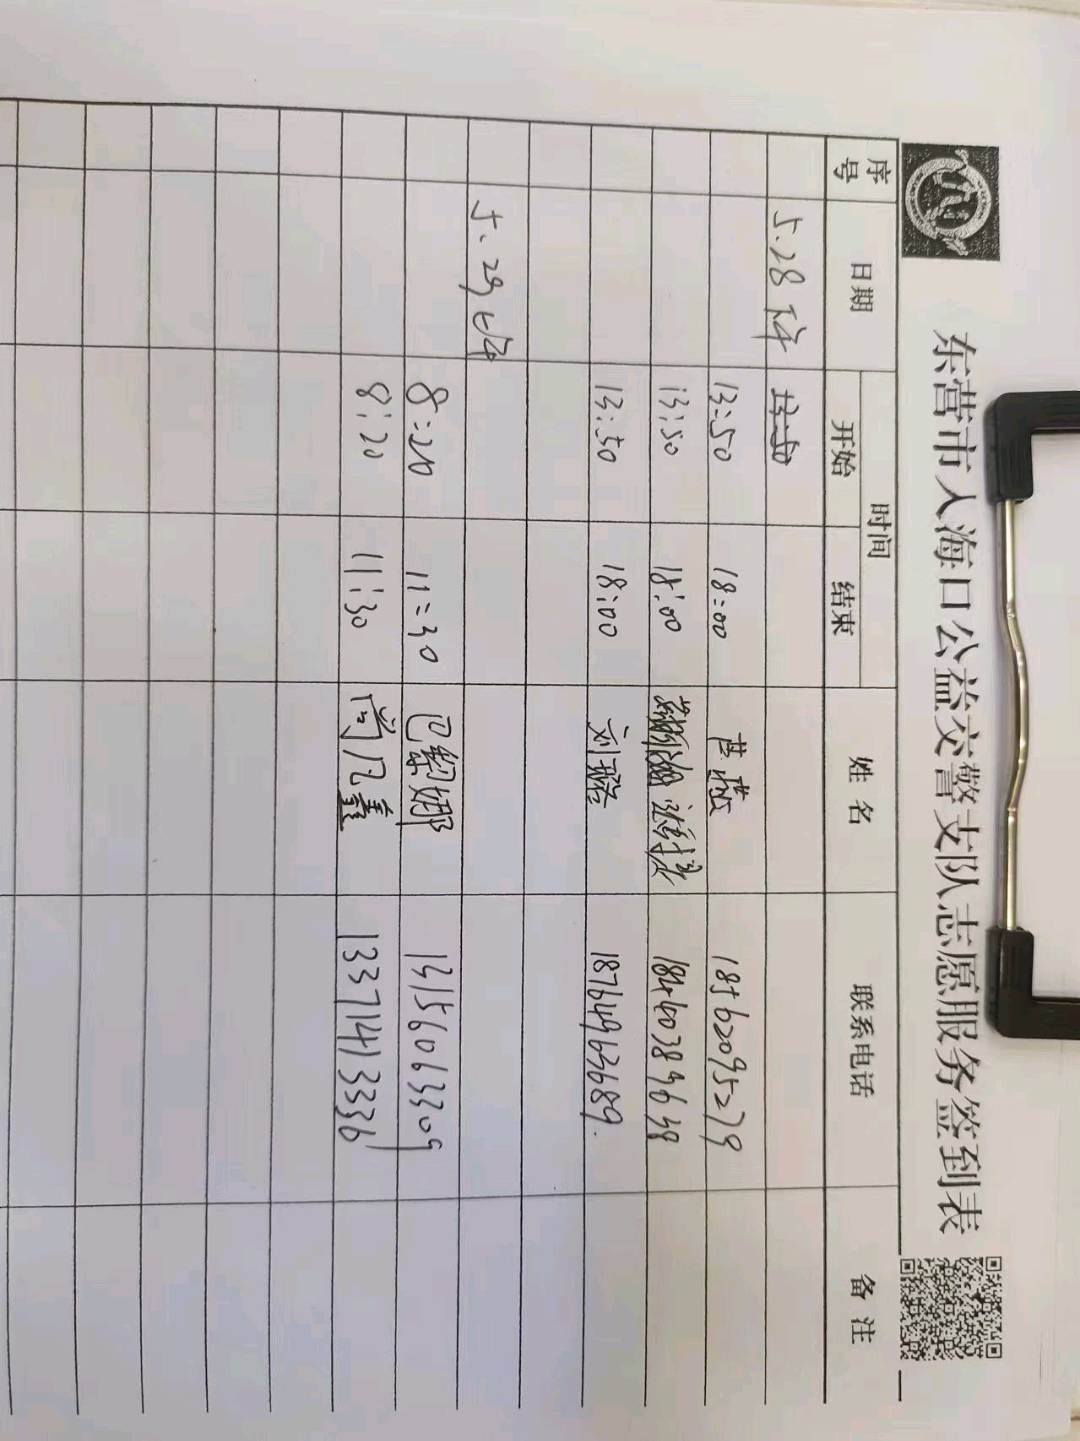 东营市人海口公益交警支队志愿服务签到表
序号 日期 时间 姓名 联系电话 备注
开始 结束
5.28 下午
13:50 18:00 18562095279
13:50 18:00 184640389638
13:50 18:00 刘璐 18764963689.
5.29 上午
8:20 11:30 巴黎娜 13156063309
8:20 11:30 尚凡鑫 13371413336